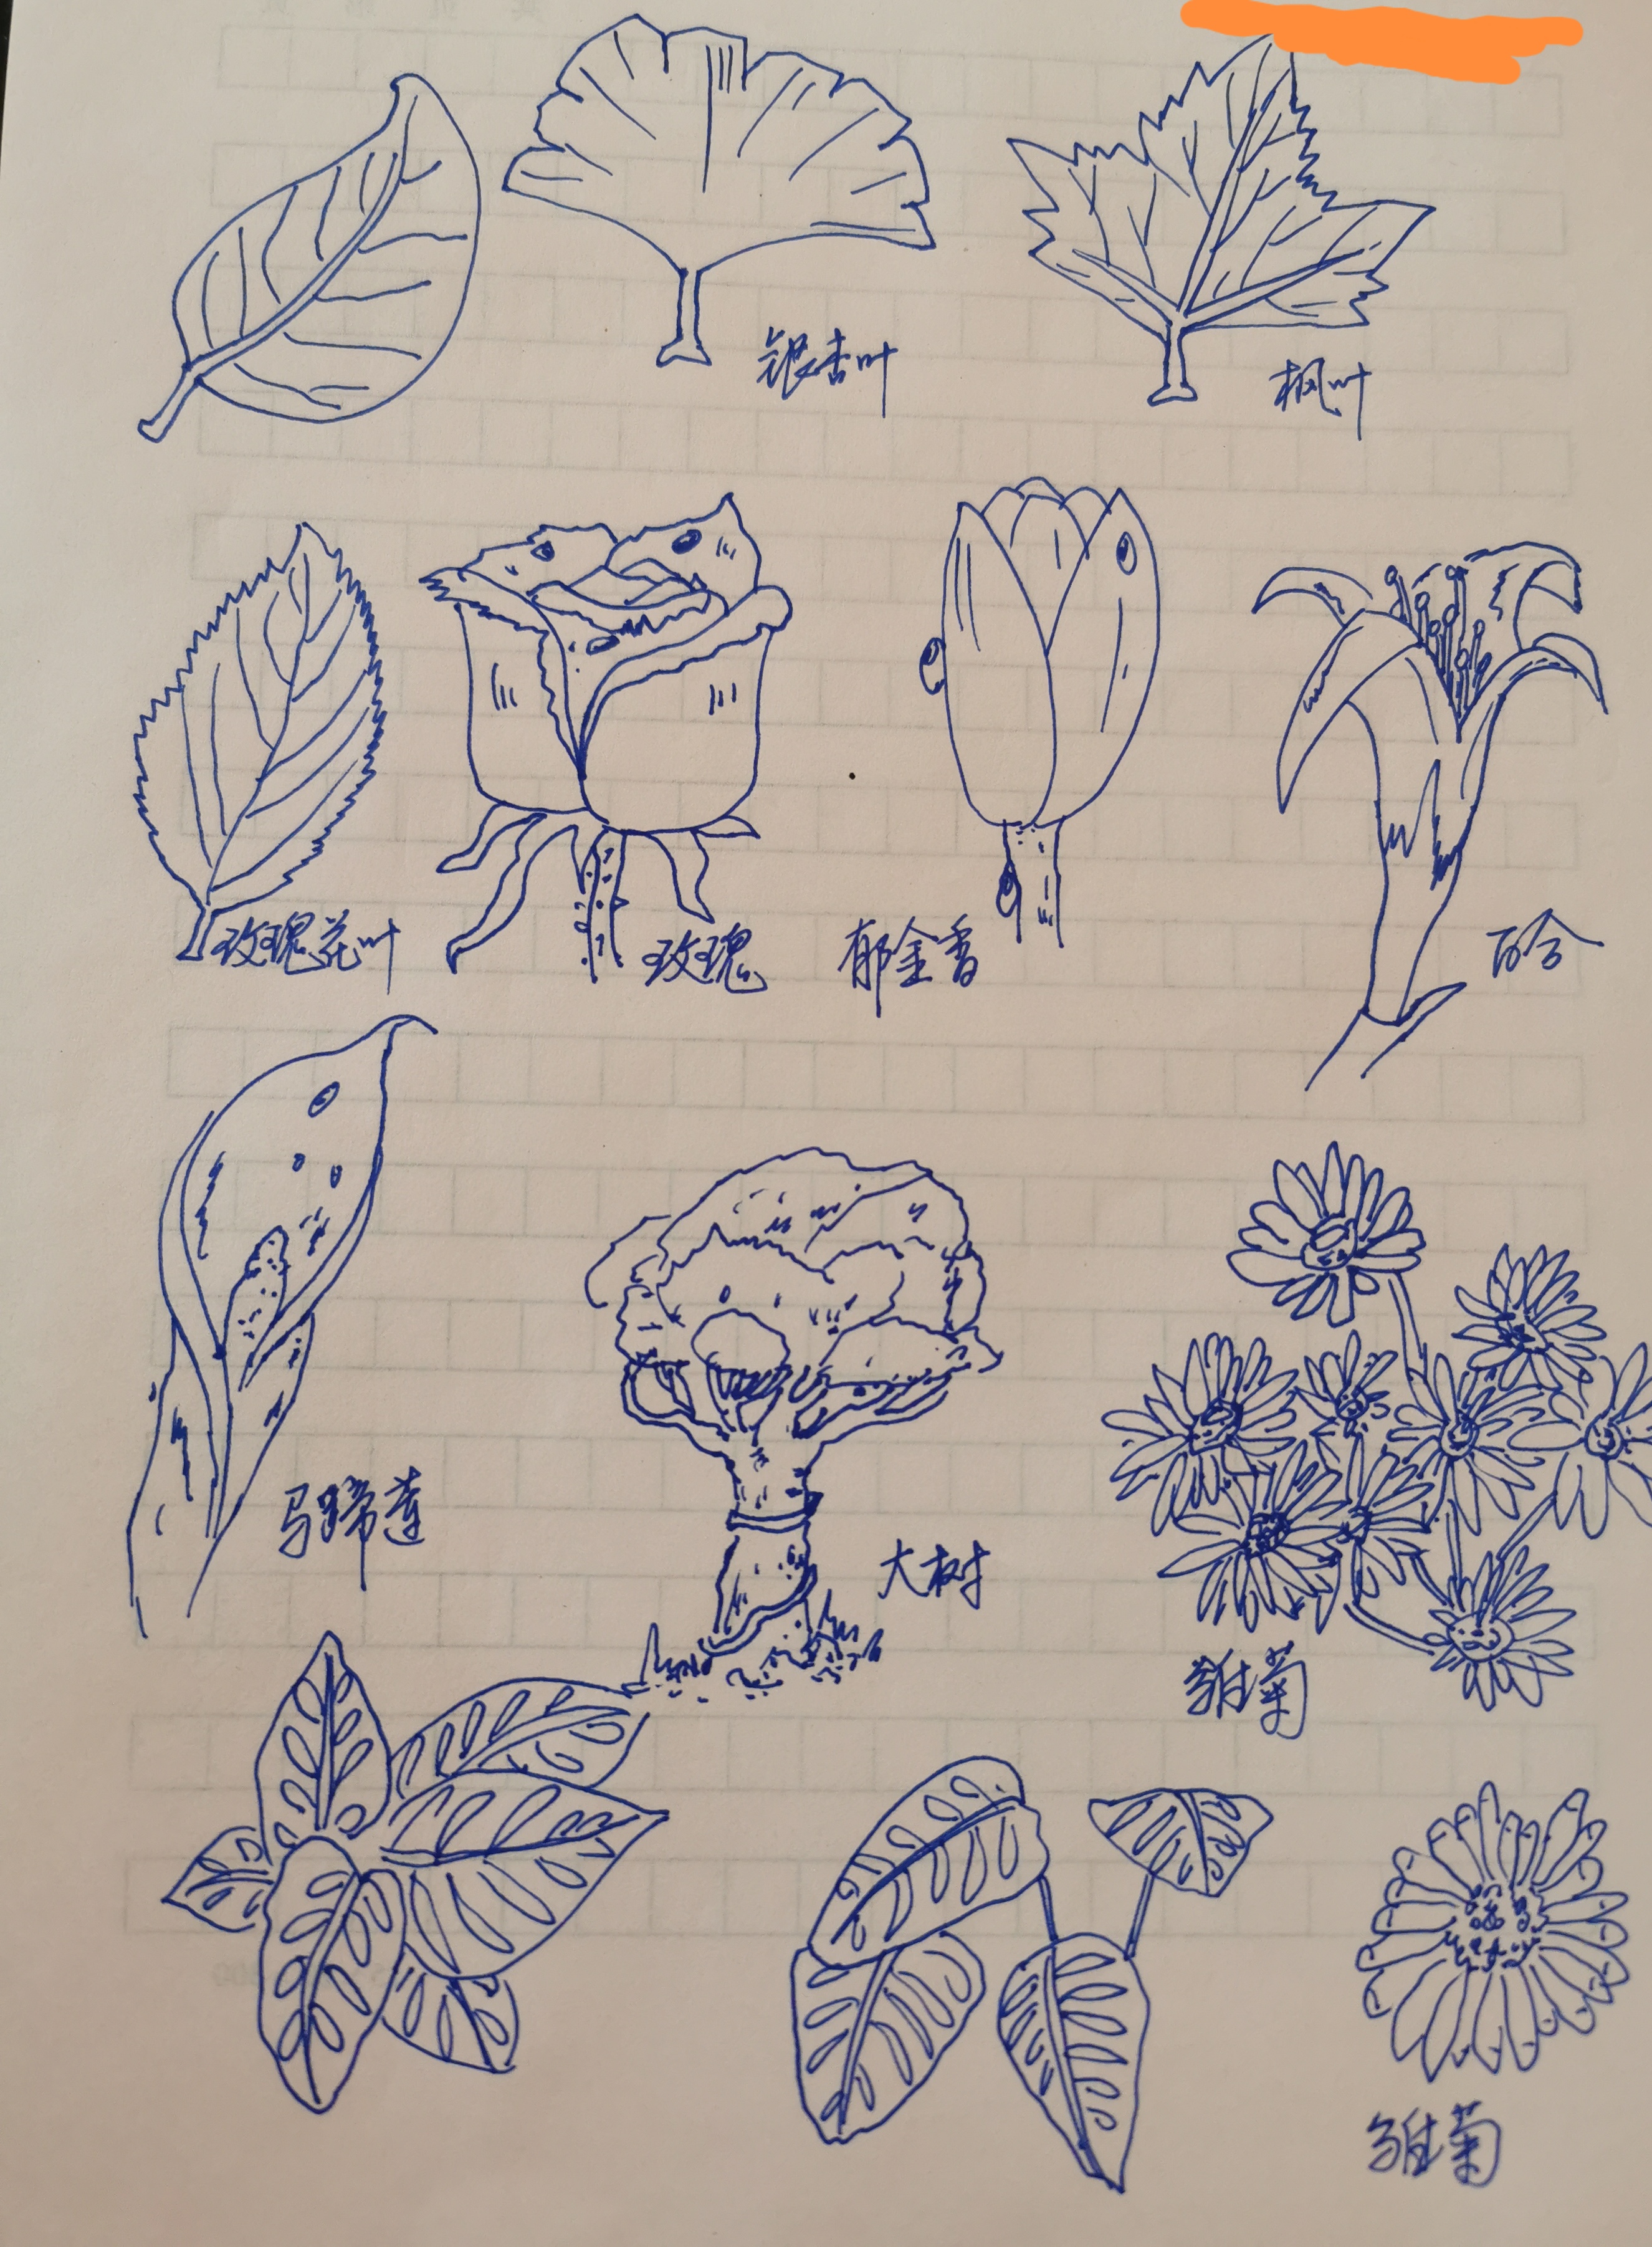 银杏叶
枫叶
玫瑰花叶
玫瑰
郁金香
百合
马蹄莲
大树
雏菊
雏菊